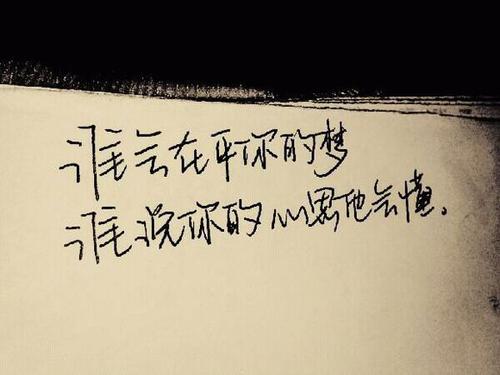 谁会在乎你的梦
谁说你的心思他会懂。